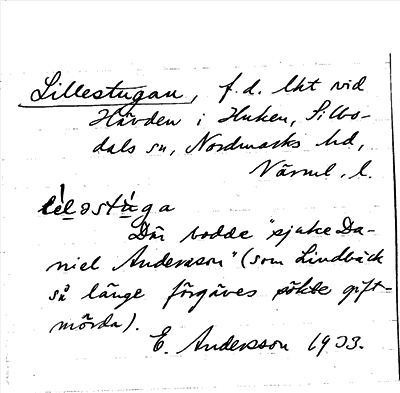 Lillestugan, f.d. lht vid
Hävden i Huken, Silbo-
dals sn, Nordmarks hd,
Värml. l.
lìlǝstùga
Där bodde "sjuke Da-
niel Andersson" (som Lindbäck
så länge förgäves sökte gift-
mörda).
E. Andersson 1933.